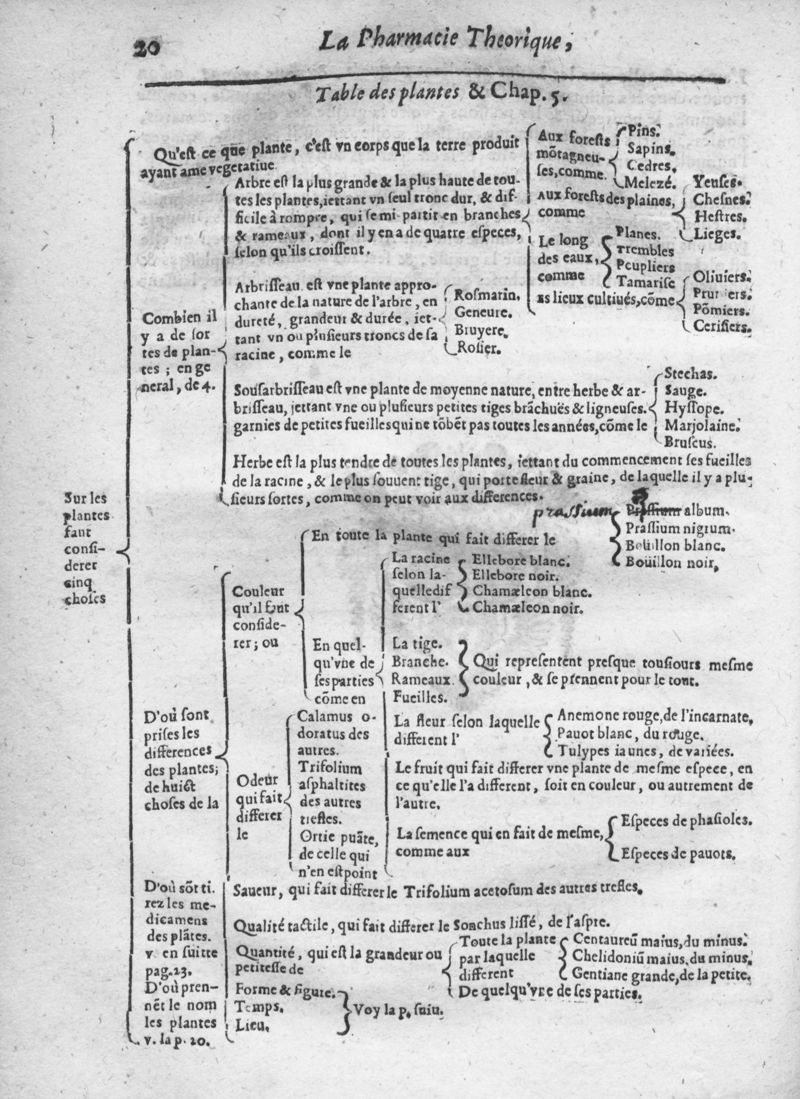 20
La Pharmacie Theorique,
Table des plantes & Chap. 5.
Sur les
plantes
faut
consi-
derer
cinq
choses
Qu'est ce que plante, c'est vn corps que la terre produit
ayant ame vegetatiue
Combien il
y a de sor
tes de plan-
tes ; en ge
neral, de 4.
Arbre est la plus grande & la plus haute de tou-
tes les plantes, iettant vn seul tronc dur, & dif-
ficile à rompre, qui se mi-partit en branches
& rameaux, dont il y en a de quatre especes,
selon qu'ils croissent.
Aux forests
mõtagneu-
ses, comme
Pins.
Sapins.
Cedres.
Melezé.
Aux forests des plaines,
comme
Yeuses.
Chesnes.
Hestres.
Lieges.
Le long
des eaux,
comme
Planes.
Trembles
Peupliers
Tamarise
as lieux cultiués, cõme
Oliuiers.
Pruniers.
Põmiers.
Cerisiers.
Arbrisseau est vne plante appro-
chante de la nature de l'arbre, en
dureté, grandeur & durée, iet-
tant vn ou plusieurs troncs de sa
racine, comme le
Rosmarin,
Geneure.
Bruyere.
Rosier.
Sousarbrisseau est vne plante de moyenne nature, entre herbe & ar-
brisseau, jettant vne ou plusieurs petites tiges brãchuës & ligneuses.
garnies de petites fueilles qui ne tõbẽt pas toutes les années, cõme le
Stechas.
Sauge.
Hyssope.
Marjolaine.
Bruscus.
Herbe est la plus tendre de toutes les plantes, iettant du commencement ses fueilles
de la racine, & le plus souuent tige, qui porte fleur & graine, de laquelle il y a plu-
sieurs sortes, comme on peut voir aux differences.
D'où sont
prises les
differences
des plantes;
de huict
choses de la
Couleur
qu'il faut
conside-
rer; ou
En toute la plante qui fait differer le
prassium
Prassium album.
Prassium nigrum.
Boüillon blanc.
Boüillon noir,
En quel-
qu'vne de
ses parties
cõme en
La racine
selon la-
quelle dif
ferent l'
Ellebore blanc.
Ellebore noir.
Chamæleon blanc.
Chamæleon noir.
La tige.
Branche.
Rameaux.
Fueilles.
Qui representent presque tousiours mesme
couleur, & se prennent pour le tout.
La fleur selon laquelle
different l'
Anemone rouge, de l'incarnate,
Pauot blanc, du rouge.
Tulypes iaunes, de variées.
Le fruit qui fait differer vne plante de mesme espece, en
ce qu'elle l'a different, soit en couleur, ou autrement de
l'autre.
La semence qui en fait de mesme,
comme aux
Especes de phasioles.
Especes de pauots.
Odeur
qui fait
differer
le
Calamus o-
doratus des
autres.
Trifolium
asphaltites
des autres
trefles.
Ortie puãte,
de celle qui
n'en est point
Saueur, qui fait differer le Trifolium acetosum des autres trefles,
Qualité tactile, qui fait differer le Sonchus lissé, de l'aspre.
Quantité, qui est la grandeur ou
petitesse de
Toute la plante
par laquelle
different
Centaureũ maius, du minus.
Chelidoniũ maius, du minus.
Gentiane grande, de la petite.
De quelqu'vne de ses parties.
Forme & figure.
Temps.
Lieu.
Voy la p. suiu.
D'où sõt ti.
rez les me-
dicamens
des plãtes.
v. en suitte
pag. 23.
D'où pren-
nẽt le nom
les plantes
v. la p. 20.